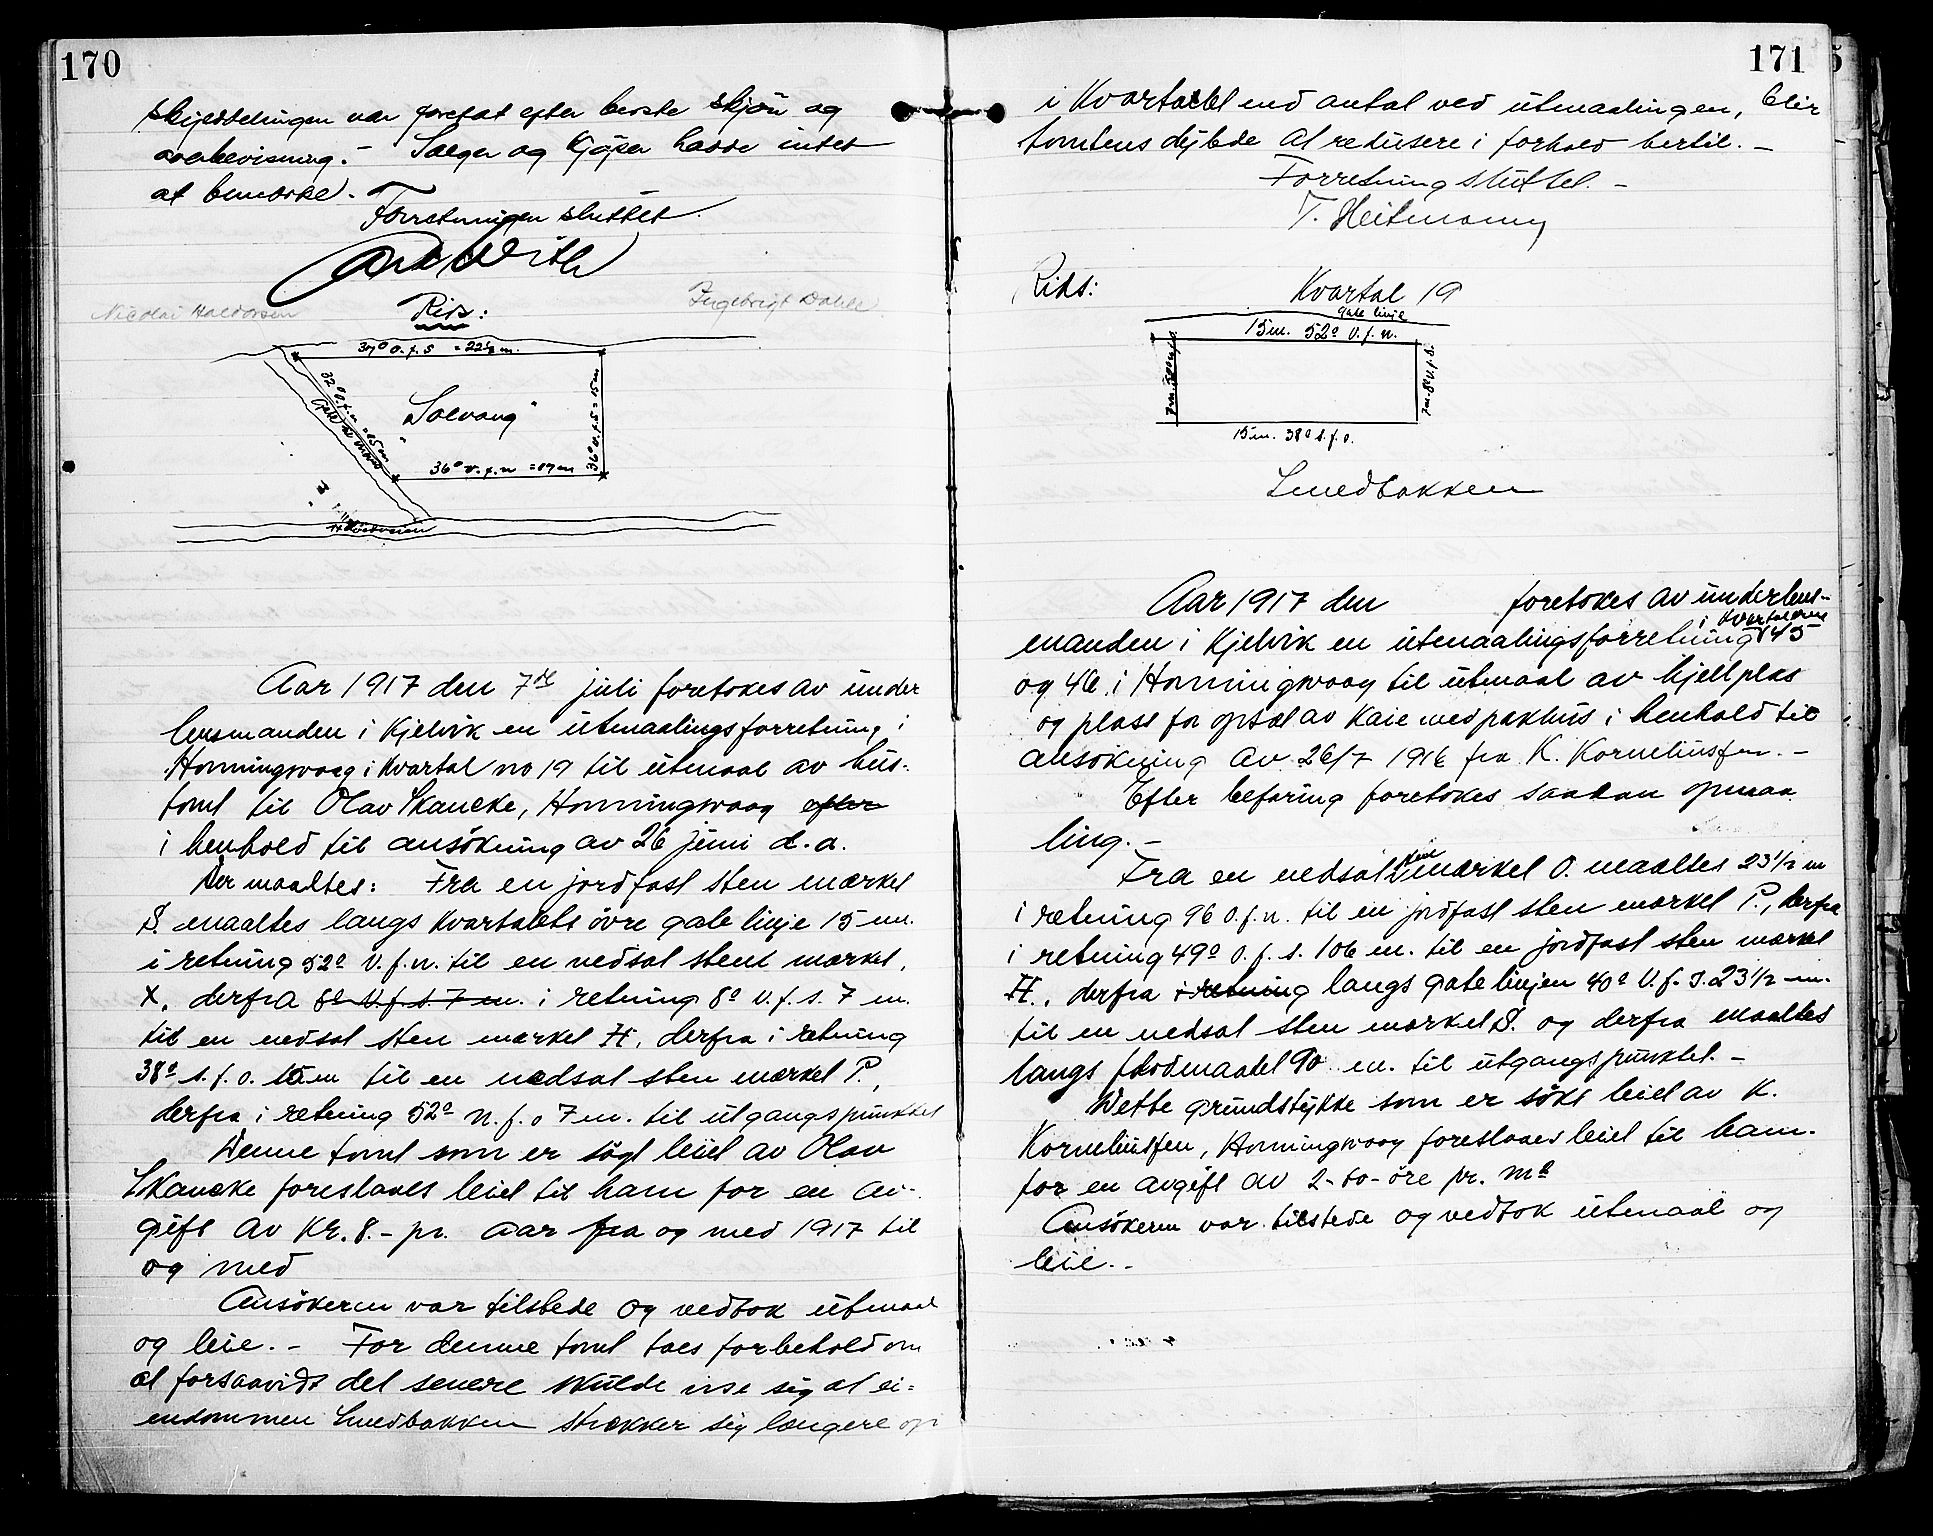 170
skjelsetningen var foretat efter beste skjön og
overbevisning. - Sælger og kjöper hadde intet
at bemerke. -
Forretningen sluttet.
Nicolai Halvorsen
Ingebrigt Dahle
Riss:
37° O. f. S = 22½ m.
32° V. f. n = 15 m
"Solvang"
36° V. f. S = 15 m
36° v. f. n = 17 m
Aar 1917 den 7de juli foretokes av under
lensmanden i Kjelvik en utmaalingsforretning i
Honningsvaag i Kvartal no 19 til utmaal av hus-
tomt til Olav Skancke, Honningsvaag efter
i henhold til ansökning av 26 juni d. a.
Der maaltes: Fra en jordfast sten merket
S. maaltes langs kvartalets övre gatelinje 15 m.
i retning 52° V. f. n. til en nedsat sten merket
X, derfra 8° V. f. S. 7 m. i retning 8° v. f. s. 7 m.
til en nedsat sten merket H, derfra i retning
38° s. f. o. 15 m til en nedsat sten merket P.,
derfra i retning 52° n. f. o 7 m. til utgangspunktet
Denne tomt som er sögt leiet av Olav
Skancke foreslaaes leiet til ham for en av-
gift av Kr. 8. - pr. aar fra og med 1917 til
og med
Ansökeren var tilstede og vedtok utmaal
og leie. - For denne tomt toes forbehold om
at forsaavidt det senere skulde vise sig at ei-
endommen Smedbakken strækker sig længere op
171
i Kvartalet end antat ved utmaalingen, blir
tomtens dybde at redusere i forhold hertil. -
Forretning sluttet. -
T. Heitmann
Rids:
Kvartal 19
gate linje
15 m. 52° V. f. n.
7 m. 8° V. f. S.
15 m. 38° s. f. o.
Smedbakken
Aar 1917 den foretokes av underlens-
manden i Kjelvik en utmaalingsforretning i Kvartalerne 45
og 46 i Honningsvaag til utmaal av hjellplas
og plass for opsæt av kaie med pakhus i henhold til
ansökning av 26/7 1916 fra K. Korneliussen. -
Efter befaring foretokes saadan opmaa
ling. -
Fra en nedsat sten merket O. maaltes 23½ m
i retning 96 o. f. n. til en jordfast sten merket P., derfra
i retning 49° o. f. s. 106 m. til en jordfast sten merket
H., derfra i retning langs gatelinjen 40° V. f. S. 23½ m.
til en nedsat sten merket S. og derfra maaltes
langs flodmaalet 90 m. til utgangspunktet. -
Dette grundstykke som er sökt leiet av K.
Korneliussen, Honningsvaag foreslaaes leiet til ham.
for en avgift av 2 - to - öre pr. m²
Ansökeren var tilstede og vedtok utmaal og
leie. -